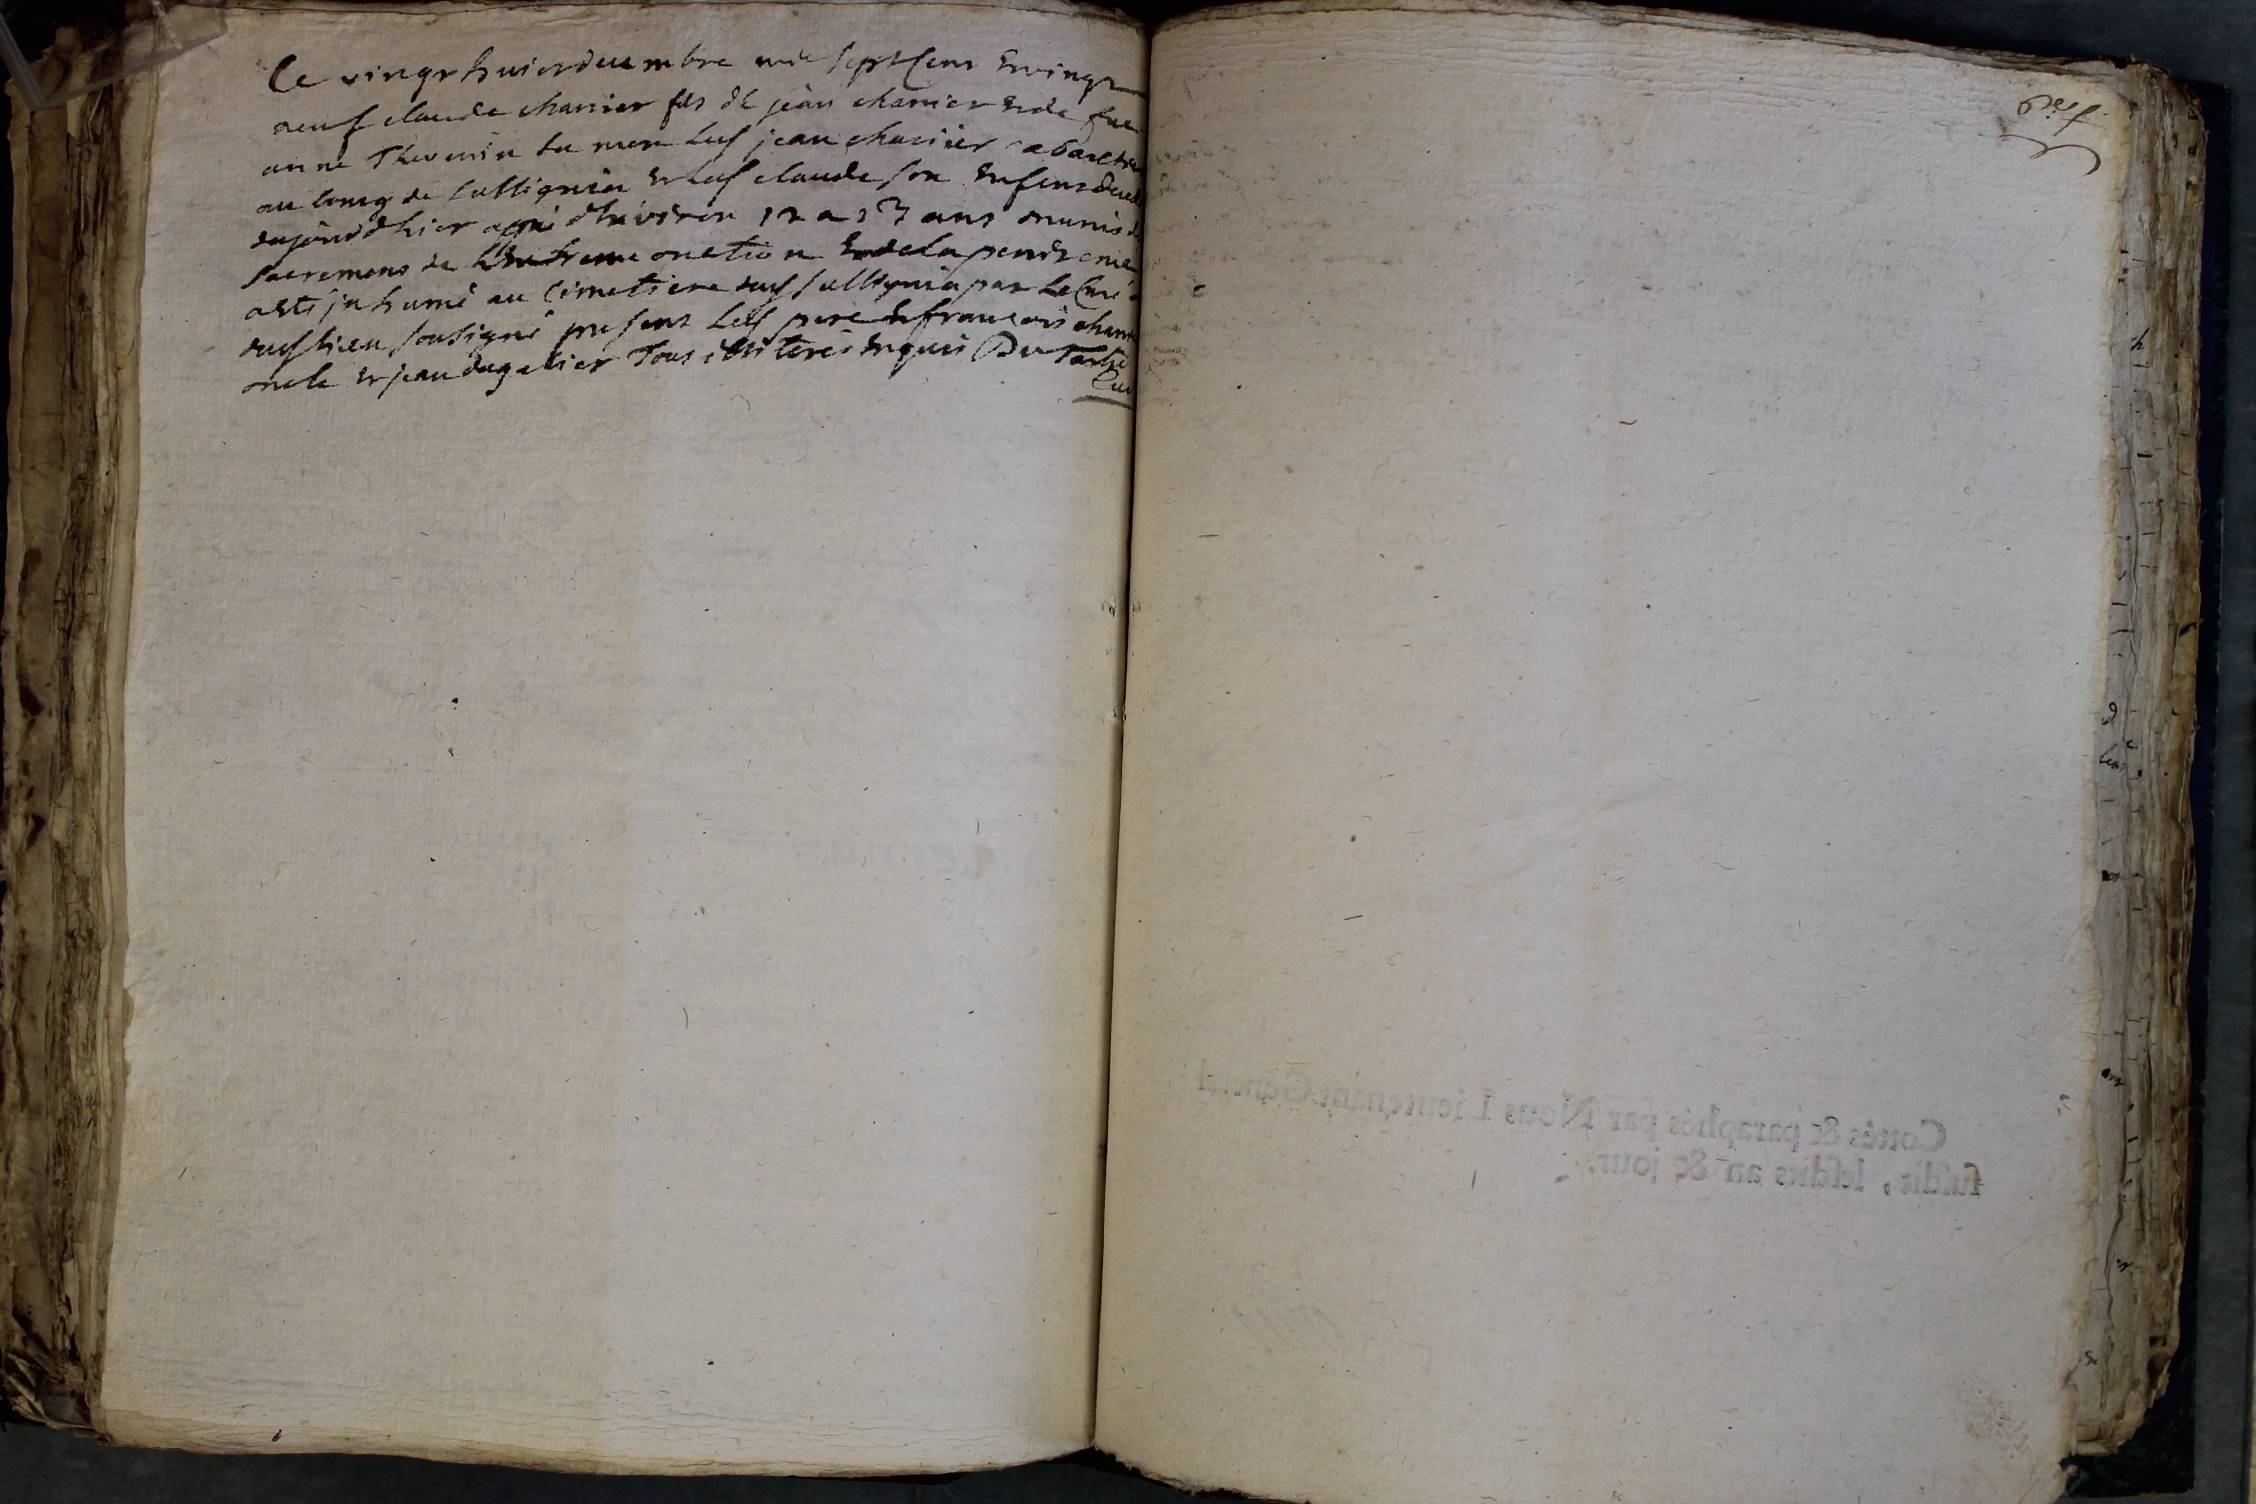 Ce vingt huict decembre mil sept cent et vingt
neuf claude charrier fils de jean charrier et de fue
anne Thevenin sa mere led jean charrier cabaretier
au bourg de et led claude son enfens decede
du jourd'hier agé d'environ 12 a 13 ans munis d
sacremens de l'extreme onction et de la penitence
a esté inhumé au cimetiere dud par le curé d
dud lieu soubsigné presens led pere et françois charrier
oncle et jean dugelier Tous illiterés enquis
Curé
Cottés & paraphés par Nous Lieutenant Général
susdit, lesdits an & jour.